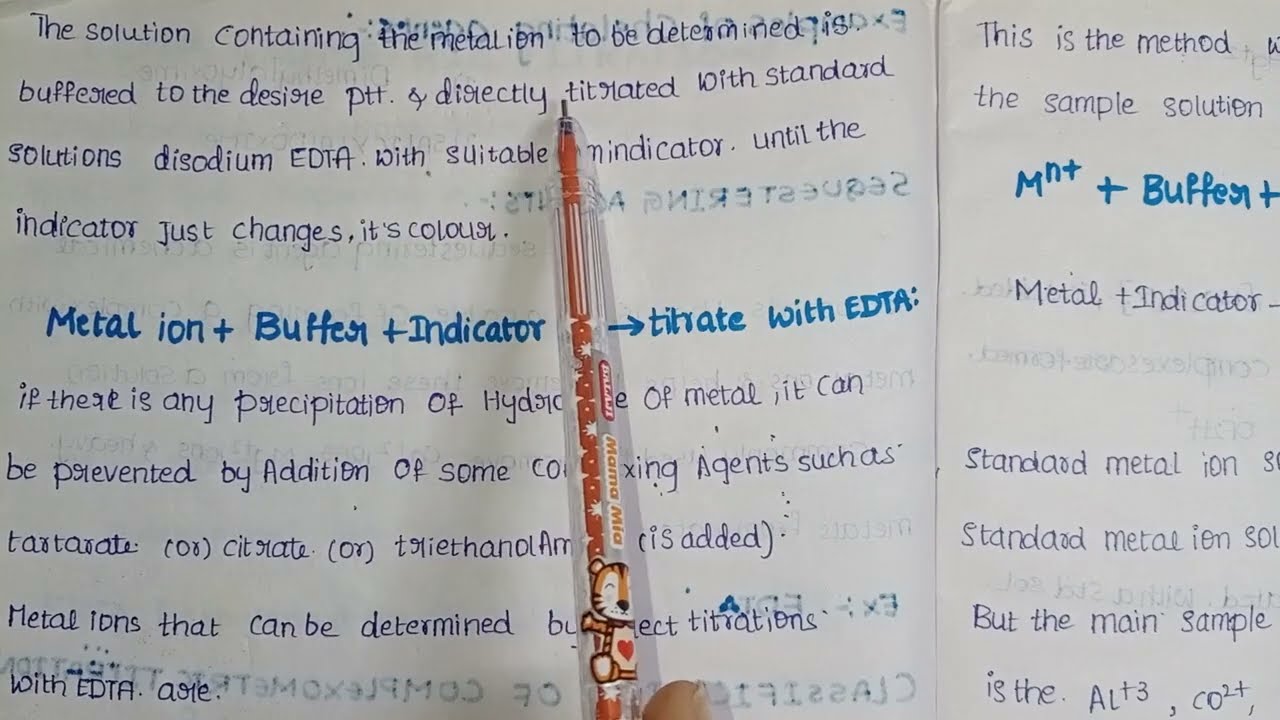 The solution containing the metal ion to be determined, is
buffered to the desire ptt. & directly titrated with standard
solutions disodium EDTA. with suitable indicator. until the
indicator Just changes, it's colour.
Metal ion + Buffer + Indicator → titrate with EDTA:
if there is any precipitation of of metal, it can
be prevented by Addition of some Agents such as
tartarate (or) citrate. (or) (is added).
Metal ions that can be determined titrations
with EDTA. are:
This is the method,
the sample solution
Mn+ + Buffer +
Metal + Indicator
Standard metal ion
Standard metal ion
But the main sample
is the. Al+3, CO2+,
BALAJI
Mama Mia